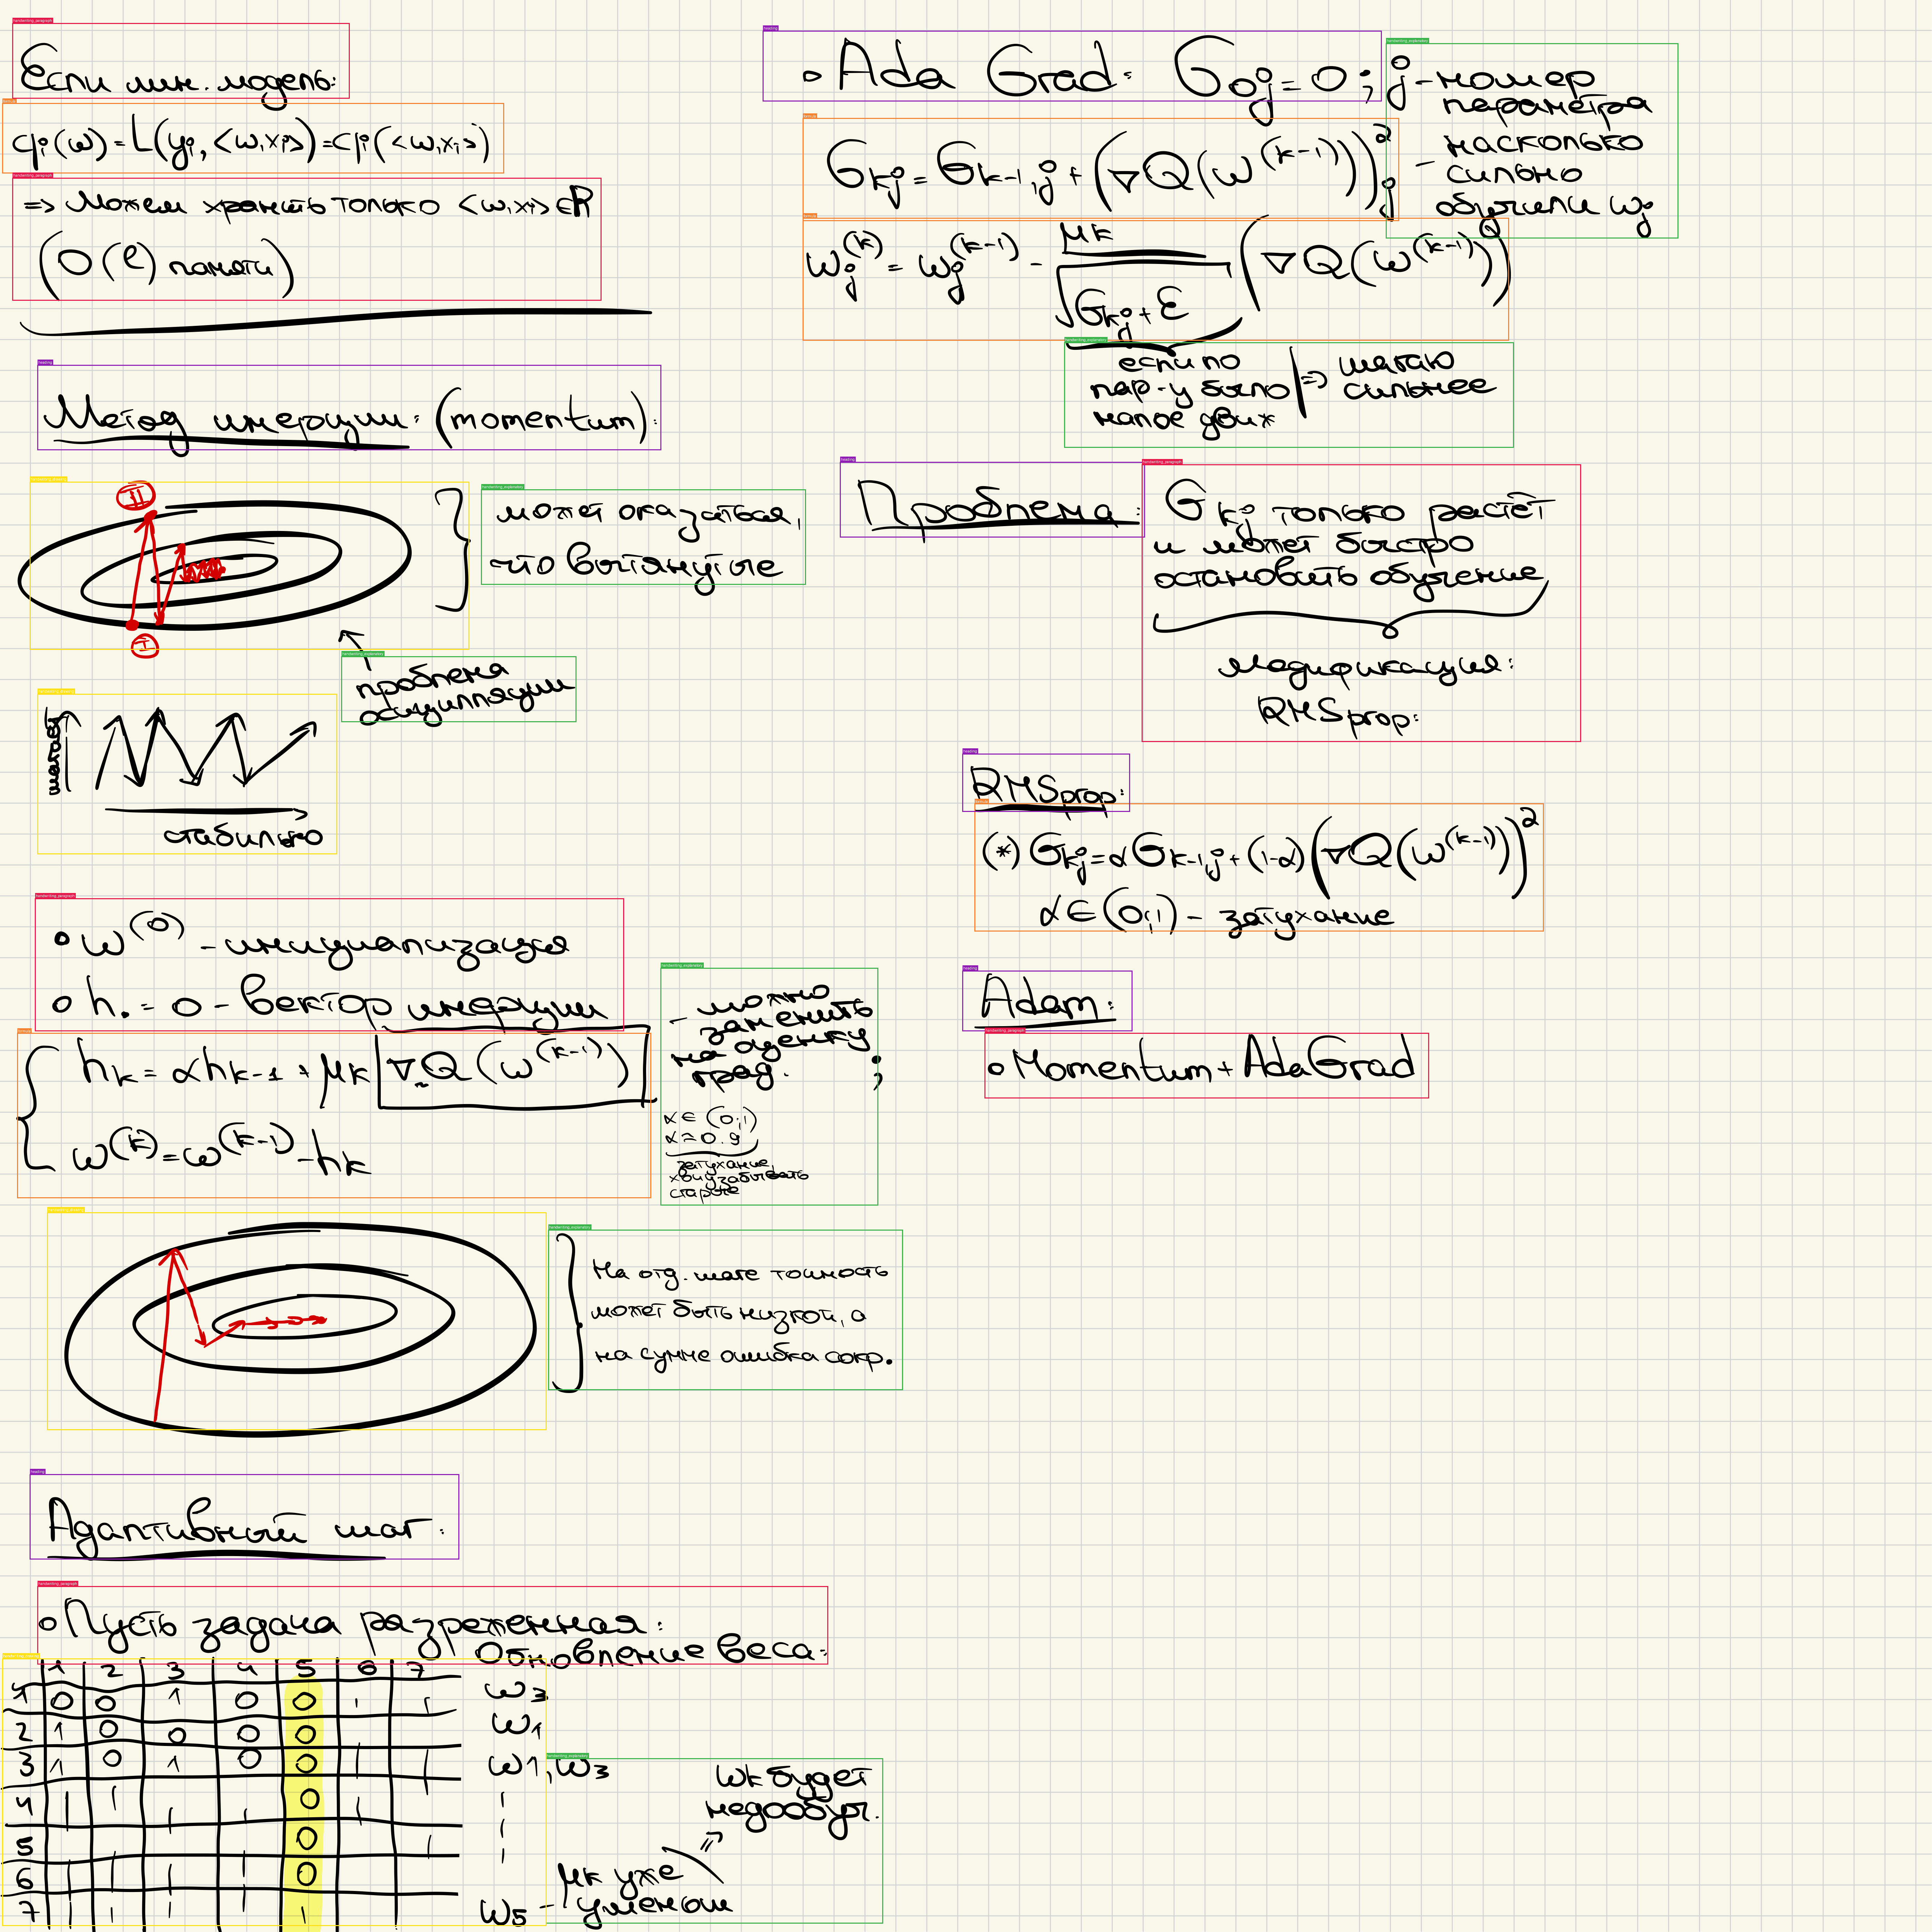 Если лин. модель:
φᵢ(ω) = L(yᵢ, <ω,xᵢ>) = φᵢ(<ω,xᵢ>)
=> Можем хранить только <ω,xᵢ> ∈ R
(O(ℓ) памяти)
Метод инерции: (momentum):
II
I
может оказаться,
что вытянутые
проблема
осцилляции
шагает
стабильно
• ω⁽⁰⁾ - инициализация
• h₀ = 0 - вектор инерции
hₖ = αhₖ₋₁ + μₖ ∇Q(ω⁽ᵏ⁻¹⁾)
ω⁽ᵏ⁾ = ω⁽ᵏ⁻¹⁾ - hₖ
- можно
заменить
на оценку
град. ;
α ∈ (0;1)
α ≈ 0.9
затухание,
хочу забывать
старые
На отд. шаге точность
может быть низкой, а
на сумме ошибка сокр.
Адаптивный шаг:
• Пусть задача разреженная:
Обновление веса:
1 2 3 4 5 6 7
1 0 0 1 0 0 ω₃
2 1 0 0 0 0 ω₁
3 1 0 1 0 0 ω1, ω₃
4 0
5 0
6 0
7 1 ω₅ -
ωk будет
недообуч.
=>
μk уже
уменьш
• Ada Grad: G₀ⱼ = 0;
j - номер
параметра
Gₖⱼ = Gₖ₋₁,ⱼ + (∇Q(ω⁽ᵏ⁻¹⁾))²ⱼ
- насколько
сильно
обучили ωⱼ
ωⱼ⁽ᵏ⁾ = ωⱼ⁽ᵏ⁻¹⁾ - μₖ / √(Gₖⱼ + ε) (∇Q(ω⁽ᵏ⁻¹⁾))ⱼ
если по
пар-у было
малое движ
=> шагаю
сильнее
Проблема:
Gₖⱼ только растёт
и может быстро
остановить обучение
модификация:
RMSprop:
RMSprop:
(*) Gₖⱼ = αGₖ₋₁,ⱼ + (1-α)(∇Q(ω⁽ᵏ⁻¹⁾))²
α ∈ (0;1) - затухание
Adam:
• Momentum + AdaGrad